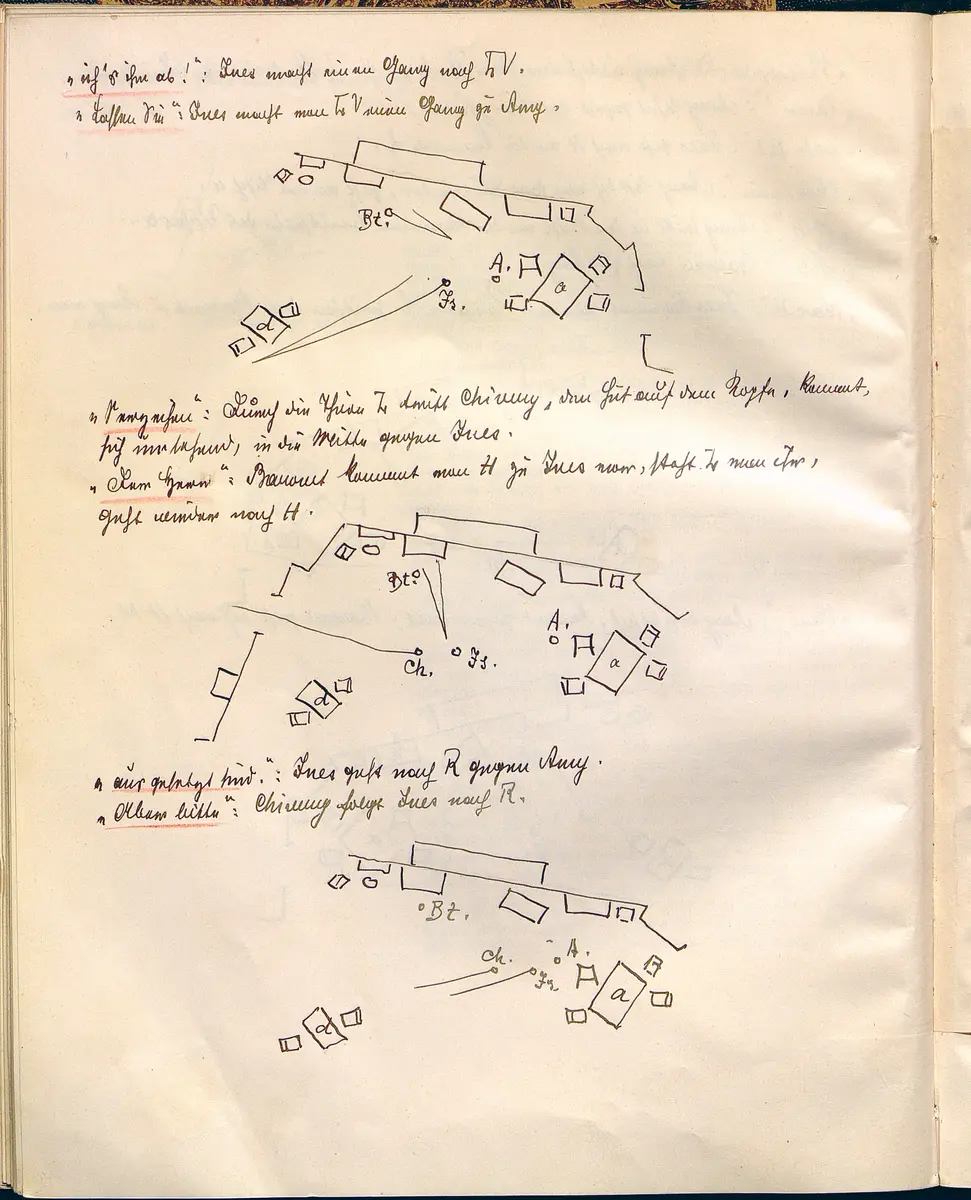 „ich's ihm ab!“: Ines macht einen Gang nach L V.
„Lassen Sie“: Ines macht von L V einen Gang zu Amy.
Bt.
A.
a
Is.
d
„Verzeihen“: Durch die Thüre L tritt Chivmy, den Hut auf dem Kopfe, kommt,
sich umsehend, in die Mitte gegen Ines.
„Der Herr“: kommt von H zu Ines vor, steht L von ihr,
geht wieder nach H.
Bt.
A.
Ch.
Is.
a
d
„ausgesetzt sind.“: Ines geht nach R gegen Amy.
„Aber bitte“: Chivmy folgt Ines nach R.
Bt.
Ch.
A.
Is.
a
d